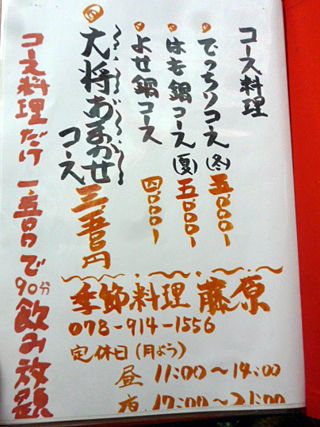 コース料理
てっちりコース(冬) 五,000〜
はも鍋コース(夏) 五,000〜
よせ鍋コース 四,000〜
大将おまかせ
コース 三五00円
コース料理だけ 一五00円で90分飲み放題
季節料理 藤原
078-914-1556
定休日(月よう)
昼 11:00〜14:00
夜 17:00〜21:00